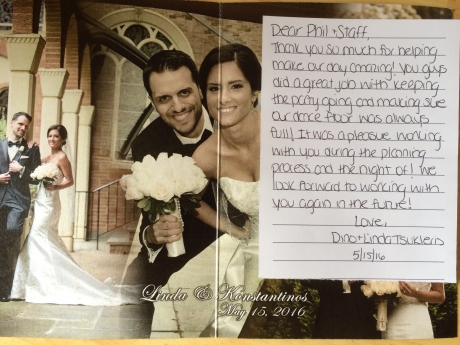 Dear Phil + Staff,
Thank you so much for helping
make our day amazing! You guys
did a great job with keeping
the party going and making sure
our dance floor was always
full! It was a pleasure working
with you during the planning
process and the night of! We
look forward to working with
you again in the future!
Love,
Dino + Linda
5/15/16
Linda & Konstantinos
May 15, 2016